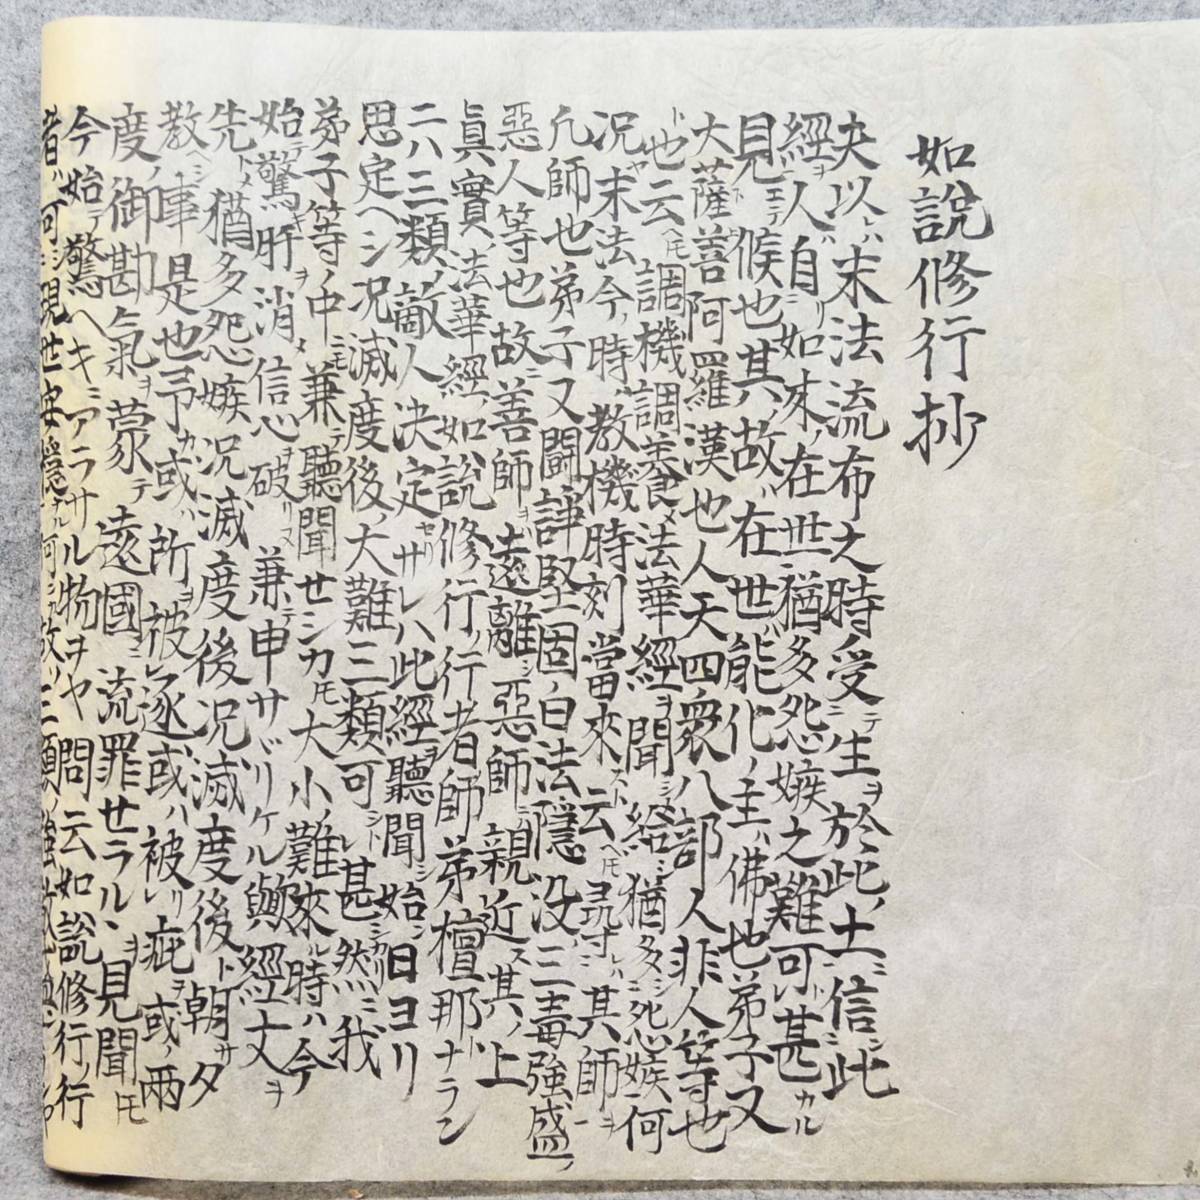 如說修行抄
夫以ハ末法流布之時受テ生ヲ於此ノ土ニ信シ此
經ヲ人ハ自リ如來ノ在世猶多怨嫉之難可甚カル
見エテ候也其ノ故ハ在世ハ能化ノ主ハ佛也弟子又
大薩菩阿羅漢也人天四衆八部人非人等也
ト也云ヘ𪜈調機調養メ法華經ヲ聞シメ給ニ猶多シ怨嫉何
況ヤ末法今ノ時ハ教機時刻當來スト云ヘ𪜈尋レハ其師ヲ
凢師也弟子又鬪諍堅固白法隱没三毒強盛ノ
惡人等也故ニ善師ヲハ遠離シ惡師ニハ親近ス其ノ上
眞實ノ法華經ノ如說修行ノ行者師弟檀那トナラン
ニハ三類ノ敵人決定セリサレハ此經ヲ聽聞シ始シ日ヨリ
思定ヘシ况滅度後ノ大難三類可シト甚シカル然ニ我
弟子等ノ中ニモ兼テ聽聞セシカ𪜈大小ノ難來ル時ハ今
始テ驚キ肝ヲ消メ信心ヲ破リヌ兼テ申サヾリケル歟經丈ヲ
先トメ猶多怨嫉况滅度後况滅度後ト朝サ夕
教ヘシ事ハ是也予カ或ハ所ヲ被レ逐或ハ被リ疵ヲ或ハ兩
度ノ御勘氣ヲ蒙テ遠國ニ流罪セラルヽヲ見聞𪜈
今始テ驚ヘキニアラサル物ヲヤ問云如說修行ノ行
者ハ何シ現世安穩ナル何シカ故ソ三類ノ強敵盛